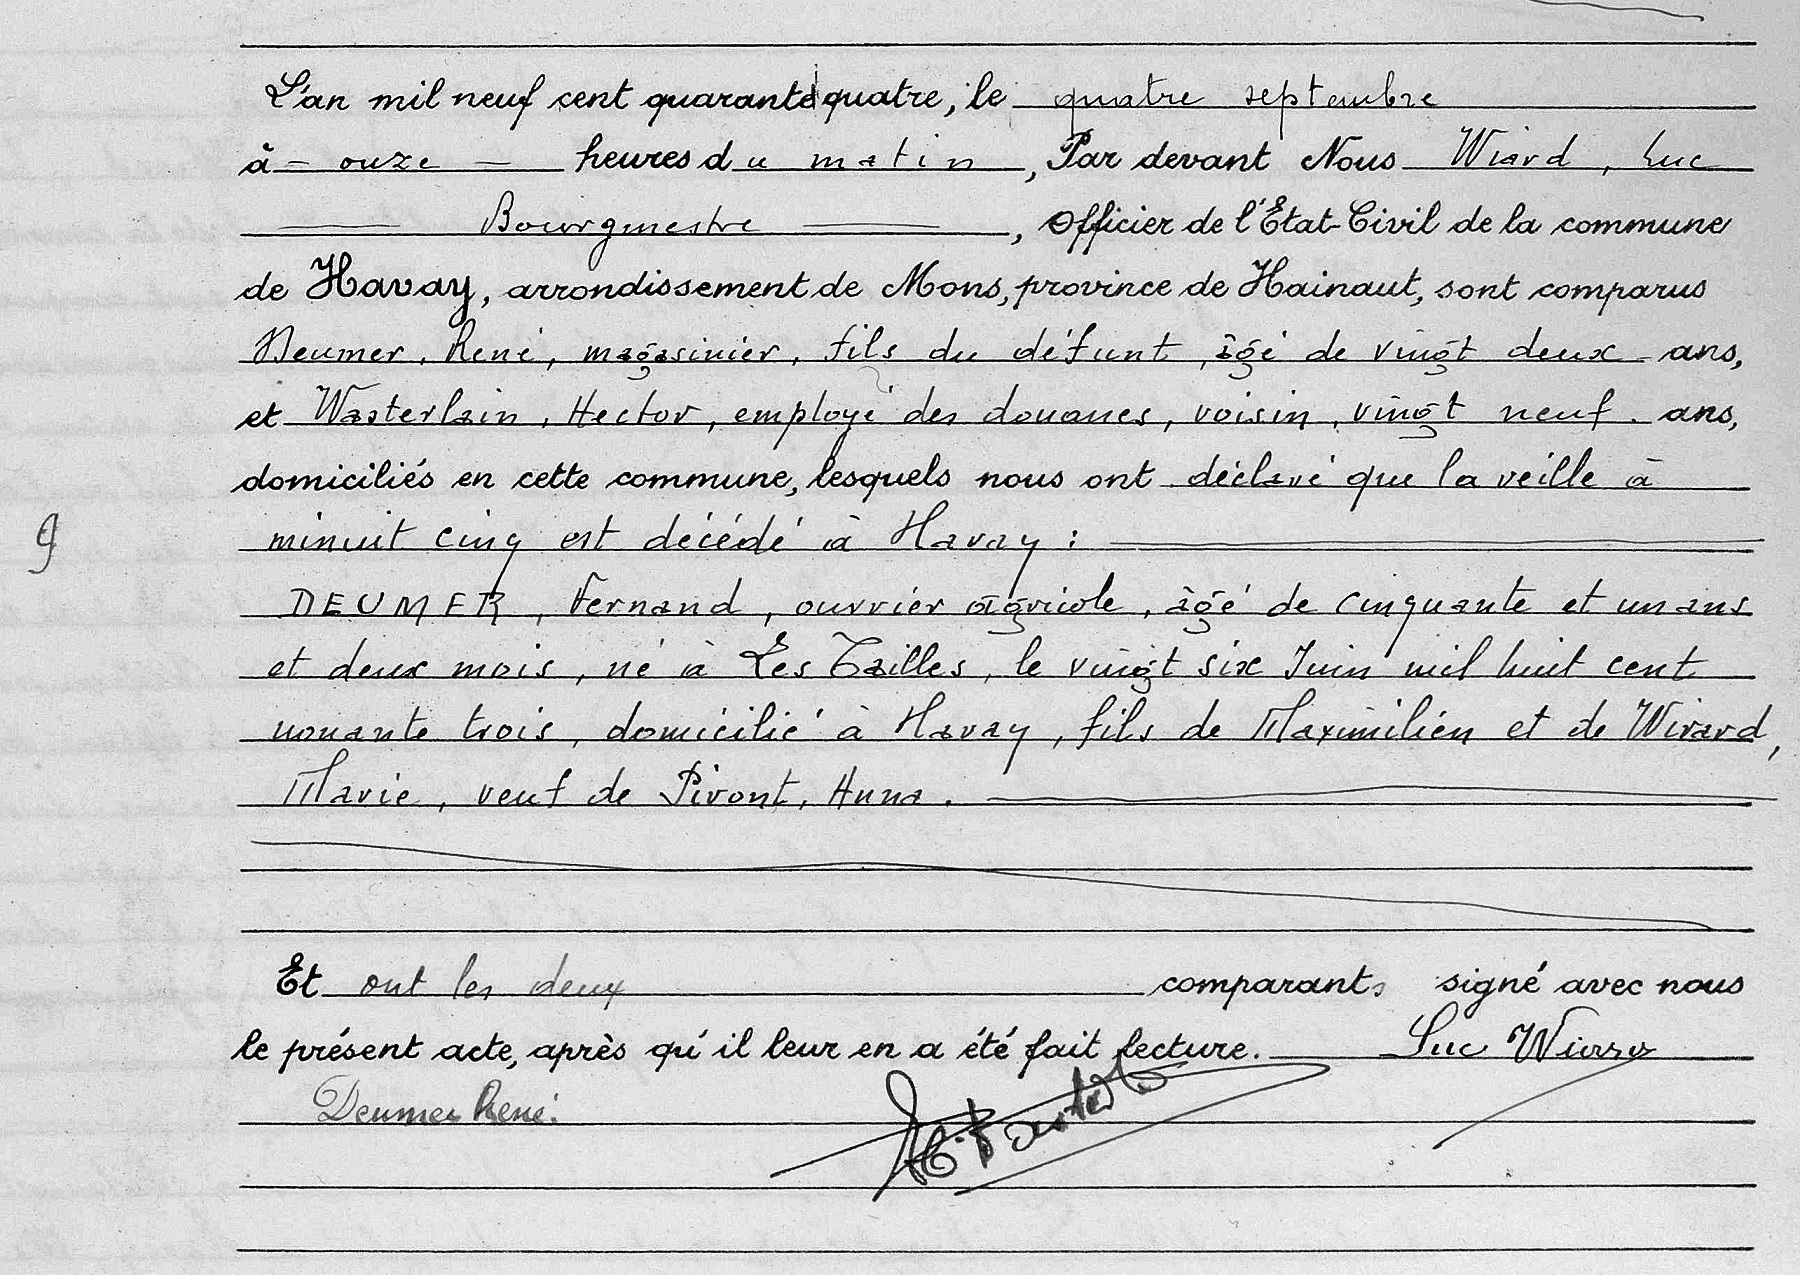 L'an mil neuf cent quarante quatre, le quatre septembre
à - onze - heures du matin, Par devant Nous Wiard, Luc
Bourgmestre, Officier de l'Etat-Civil de la commune
de Havay, arrondissement de Mons, province de Hainaut, sont comparus
Deumer, René, magasinier, fils du défunt, âgé de vingt deux ans,
et Wasterlain, Hector, employé des douanes, voisin, vingt neuf ans,
domiciliés en cette commune, lesquels nous ont déclaré que la veille à
minuit cinq est décédé à Havay :
DEUMER, Fernand, ouvrier agricole, âgé de cinquante et un ans
et deux mois, né à Les Tailles, le vingt six Juin mil huit cent
nonante trois, domicilié à Havay, fils de Maximilien et de Wirard,
Marie, veuf de Piront, Anna.
Et ont les deux comparants signé avec nous
le présent acte, après qu'il leur en a été fait lecture. Luc Wiard
Deumer René.